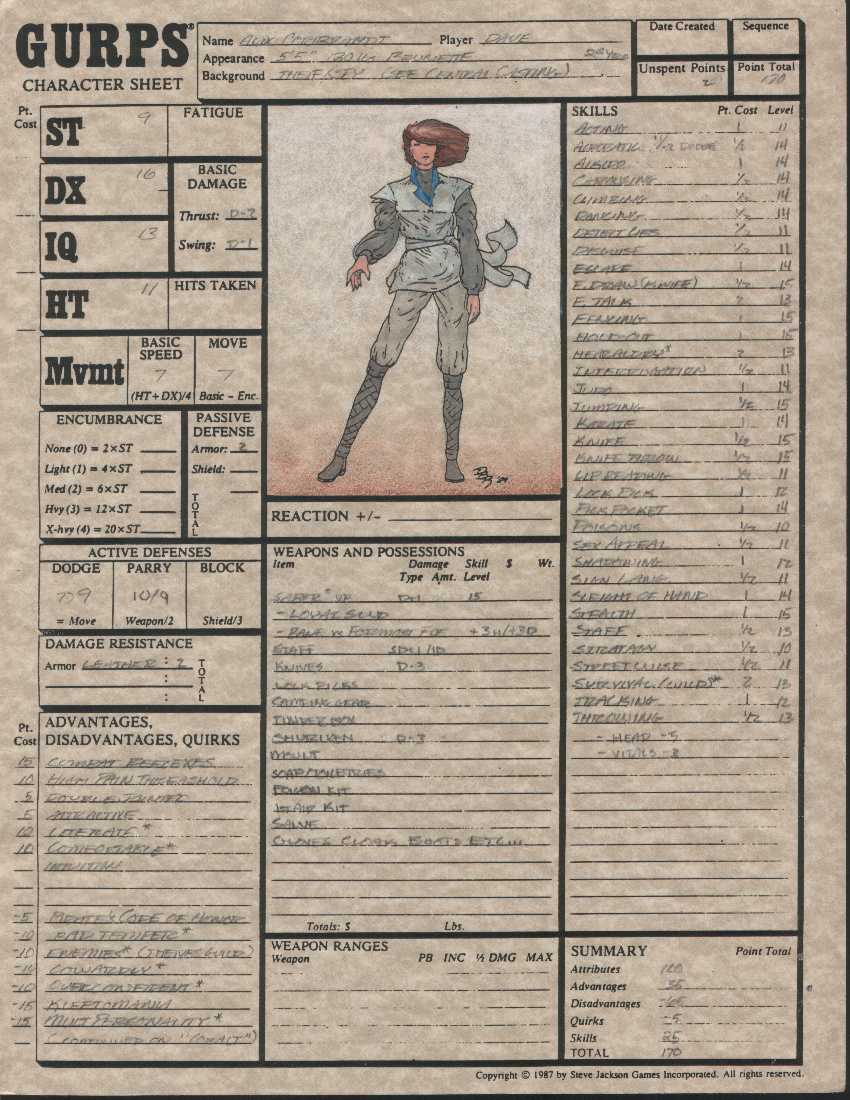 GURPS®
CHARACTER SHEET
Name Player DAVE
Appearance 5'5" BRUNETTE
Background THIEF/SPY (SEE CENTRAL CASTING)
Date Created
Sequence
Unspent Points
Point Total
170
Pt. Cost
ST 9
FATIGUE
DX 16
BASIC DAMAGE
Thrust: D-2
Swing: D-1
IQ 13
HT 11
HITS TAKEN
Mvmt
BASIC SPEED
7
(HT+DX)/4
MOVE
7
Basic – Enc.
ENCUMBRANCE
None (0) = 2×ST
Light (1) = 4×ST
Med (2) = 6×ST
Hvy (3) = 12×ST
X-hvy (4) = 20×ST
PASSIVE DEFENSE
Armor: 2
Shield:
TOTAL
ACTIVE DEFENSES
DODGE
9
= Move
PARRY
10/9
Weapon/2
BLOCK
Shield/3
DAMAGE RESISTANCE
Armor LEATHER : 2
TOTAL
Pt. Cost
ADVANTAGES, DISADVANTAGES, QUIRKS
15 COMBAT REFLEXES
10 HIGH PAIN THRESHOLD
5 DOUBLE JOINTED
5 ATTRACTIVE
10 LITERATE*
10 COMFORTABLE*
INTUITION
-5 CODE OF HONOR
-10 BAD TEMPER*
-10 ENEMIES* (THIEVES GUILD)
-10 COWARDLY*
-10 OVERCONFIDENT*
-15 KLEPTOMANIA
-15 MULT PERSONALITY*
(CONTINUED ON "COBALT")
REACTION +/–
WEAPONS AND POSSESSIONS
Item Damage Type Amt. Skill Level $ Wt.
SABER D-1 15
- BANE +3D
STAFF
KNIVES D-3
LOCK PICKS
CAMPING GEAR
TINDERBOX
SHURIKEN D-3
SOAP/TOILETRIES
POISON KIT
1st AID KIT
SALVE
GLOVES CLOAK BOOTS ETC...
Totals: $ Lbs.
WEAPON RANGES
Weapon PB INC ½ DMG MAX
SKILLS Pt. Cost Level
ACTING 1 11
ACROBATIC DODGE ½ 14
1 14
CAROUSING ½ 14
CLIMBING ½ 14
DANCING ½ 14
DETECT LIES ½ 11
DISGUISE ½ 11
ESCAPE 1 14
F. DRAW (KNIFE) ½ 15
F. TALK 2 13
FENCING 1 15
HOLDOUT 1 15
HERALDRY* 2 13
INTERROGATION ½ 11
JUDO 1 14
JUMPING ½ 15
KARATE 1 14
KNIFE ½ 15
KNIFE THROW ½ 15
LIP READING ½ 11
LOCK PICK 1 12
PICK POCKET 1 14
POISONS ½ 10
SEX APPEAL ½ 11
SHADOWING 1 12
SIGN LANG. ½ 11
SLEIGHT OF HAND 1 14
STEALTH 1 15
STAFF ½ 13
STRATAGY ½ 10
STREETWISE ½ 11
SURVIVAL 2 13
TRACKING 1 12
THROWING ½ 13
- HEAD -5
- VITALS -3
SUMMARY Point Total
Attributes
Advantages 35
Disadvantages
Quirks -5
Skills 25
TOTAL 170
Copyright © 1987 by Steve Jackson Games Incorporated. All rights reserved.